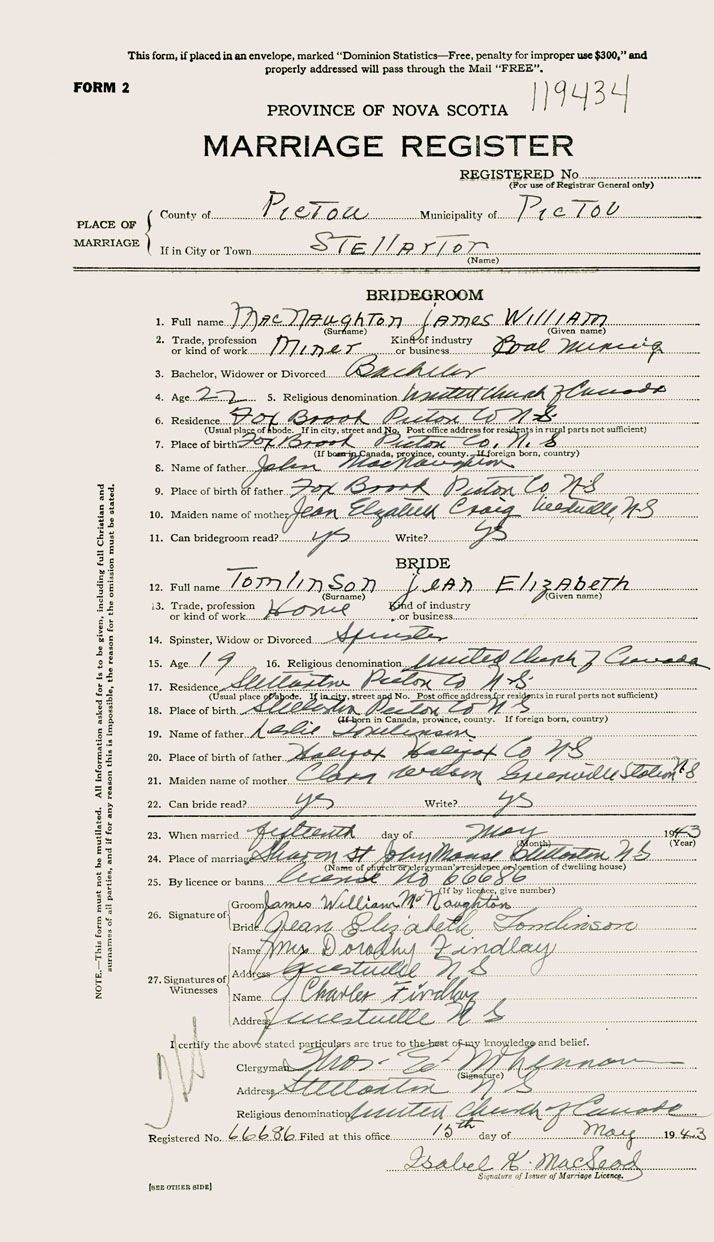 This form, if placed in an envelope, marked "Dominion Statistics—Free, penalty for improper use $300," and
properly addressed will pass through the Mail "FREE".
FORM 2
119434
PROVINCE OF NOVA SCOTIA
MARRIAGE REGISTER
REGISTERED No.
(For use of Registrar General only)
PLACE OF MARRIAGE
County of Pictou Municipality of Pictou
If in City or Town Stellarton
(Name)
BRIDEGROOM
1. Full name MacNaughton James William
(Surname) (Given name)
2. Trade, profession or kind of work Miner Kind of industry or business Coal Mining
3. Bachelor, Widower or Divorced Bachelor
4. Age 22 5. Religious denomination United Church of Canada
6. Residence Fox Brook Pictou Co N.S
(Usual place of abode. If in city, street and No. Post office address for residents in rural parts not sufficient)
7. Place of birth Fox Brook Pictou Co. N. S
(If born in Canada, province, county. If foreign born, country)
8. Name of father John MacNaughton
9. Place of birth of father Fox Brook Pictou Co N-S
10. Maiden name of mother Jean Elizabeth Craig N-S
11. Can bridegroom read? yes Write? yes
BRIDE
12. Full name Tomlinson Jean Elizabeth
(Surname) (Given name)
13. Trade, profession or kind of work Home Kind of industry or business
14. Spinster, Widow or Divorced Spinster
15. Age 19 16. Religious denomination United Church of Canada
17. Residence Stellarton Pictou Co N-S.
(Usual place of abode. If in city, street and No. Post office address for residents in rural parts not sufficient)
18. Place of birth Stellarton Pictou Co N-S
(If born in Canada, province, county. If foreign born, country)
19. Name of father Leslie Tomlinson
20. Place of birth of father Halifax Halifax Co N-S
21. Maiden name of mother Clara Greenville Station N-S
22. Can bride read? yes Write? yes
23. When married fifteenth day of May 1943
(Month) (Year)
24. Place of marriage Sharon St John Manse Stellarton N S
(Name of church or clergyman's residence or location of dwelling house)
25. By licence or banns license No 66686
(If by licence, give number)
26. Signature of
Groom James William McNaughton
Bride Jean Elizabeth Tomlinson
27. Signatures of Witnesses
Name Mrs Dorothy Findlay
Address N S
Name Charles Findlay
Address N S
I certify the above stated particulars are true to the best of my knowledge and belief.
Clergyman Thos. E.
(Signature)
Address Stellarton N S
Religious denomination United Church of Canada
Registered No. 66686 Filed at this office 15th day of May 1943
Isabel K. MacLeod
Signature of Issuer of Marriage Licence.
[SEE OTHER SIDE]
NOTE.—This form must not be mutilated. All information asked for is to be given, including full Christian and
surnames of all parties, and if for any reason this is impossible, the reason for the omission must be stated.